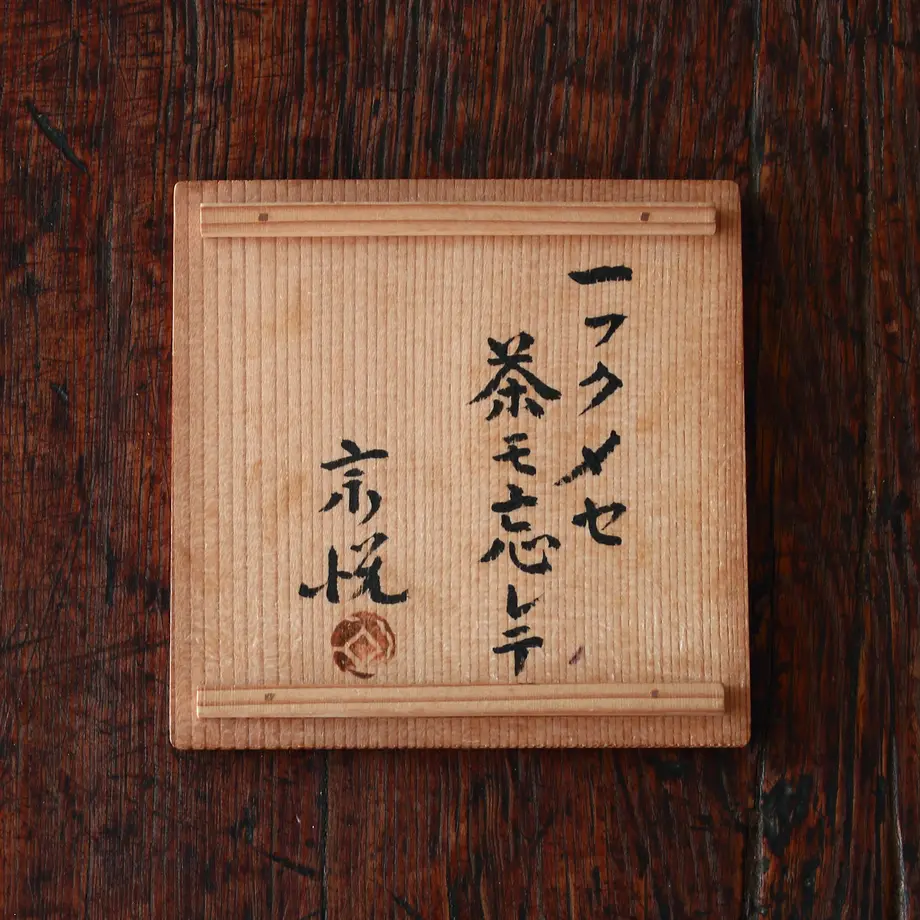 一フクメセ
茶モ忘レテ
宗悦